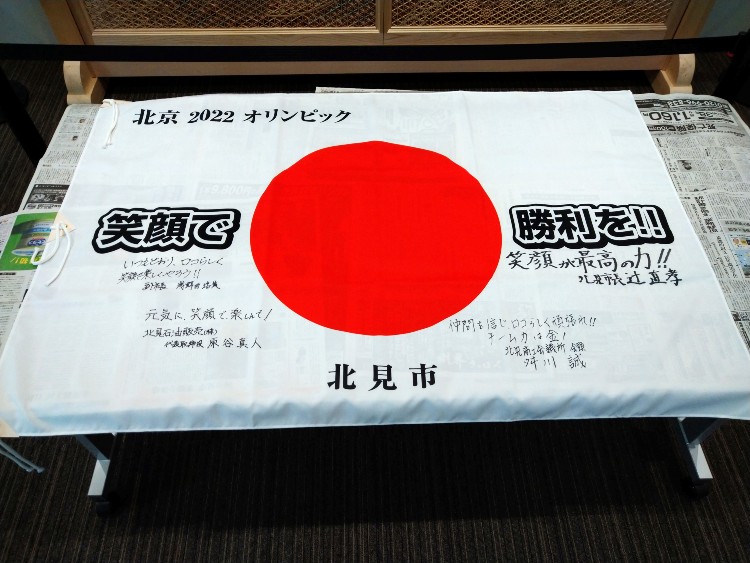 北京 2022 オリンピック
笑顔で
勝利を!!
いつもどおり、ロコらしく
笑顔で楽しんで
笑顔が最高の力!!
北見市長 辻 直孝
元気に、笑顔で、楽しんで!
北見石油販売(株)
代表取締役 原谷真人
仲間を信じロコらしく頑張れ!!
チーム力は金!
北見商工会議所 会頭
川 誠
北見市
1,160